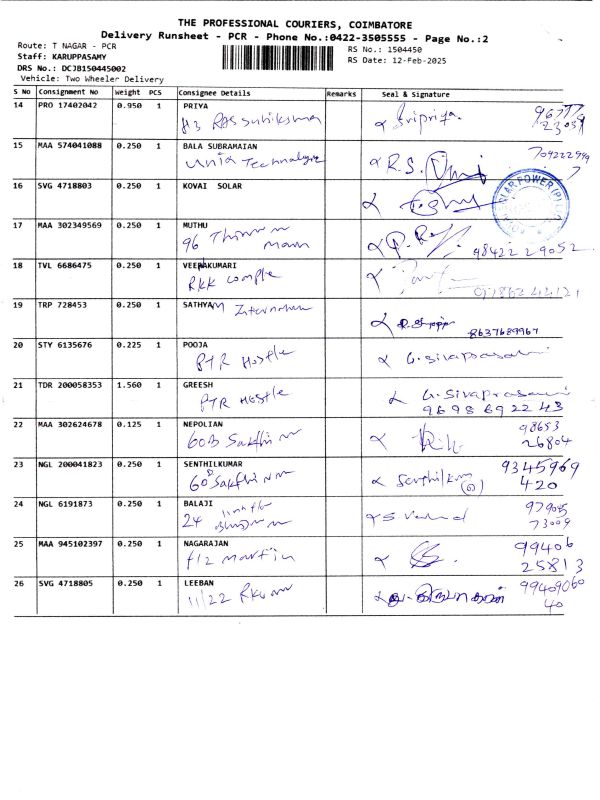 THE PROFESSIONAL COURIERS, COIMBATORE
Delivery Runsheet - PCR - Phone No.:0422-3505555 - Page No.:2
Route: T NAGAR - PCR
RS No.: 1504450
Staff: KARUPPASAMY
RS Date: 12-Feb-2025
DRS No.: DCJB150445002
Vehicle: Two Wheeler Delivery
S No Consignment No Weight PCS Consignee Details Remarks Seal & Signature
14 PRO 17402042 0.950 1 PRIYA
Sripriya 96377 23039
15 MAA 574041088 0.250 1 BALA SUBRAMAIAN
Unix Technology R.S.
16 SVG 4718803 0.250 1 KOVAI SOLAR
17 MAA 302349569 0.250 1 MUTHU
96 98422 29052
18 TVL 6686475 0.250 1 VEERAKUMARI
RKK Comple
19 TRP 728453 0.250 1 SATHYAM
8637689967
20 STY 6135676 0.225 1 POOJA
PTR Hostle G. Sivaprasami
21 TDR 200058353 1.560 1 GREESH
PTR Hostle G. Sivaprasami
96986 92243
22 MAA 302624678 0.125 1 NEPOLIAN
60B Sakthi 98653
26804
23 NGL 200041823 0.250 1 SENTHILKUMAR
60 Sakthi Senthilkum 9345969
420
24 NGL 6191873 0.250 1 BALAJI
24
73009
25 MAA 945102397 0.250 1 NAGARAJAN
f12 martin 99406
25813
26 SVG 4718805 0.250 1 LEEBAN
11/22 99409060
40